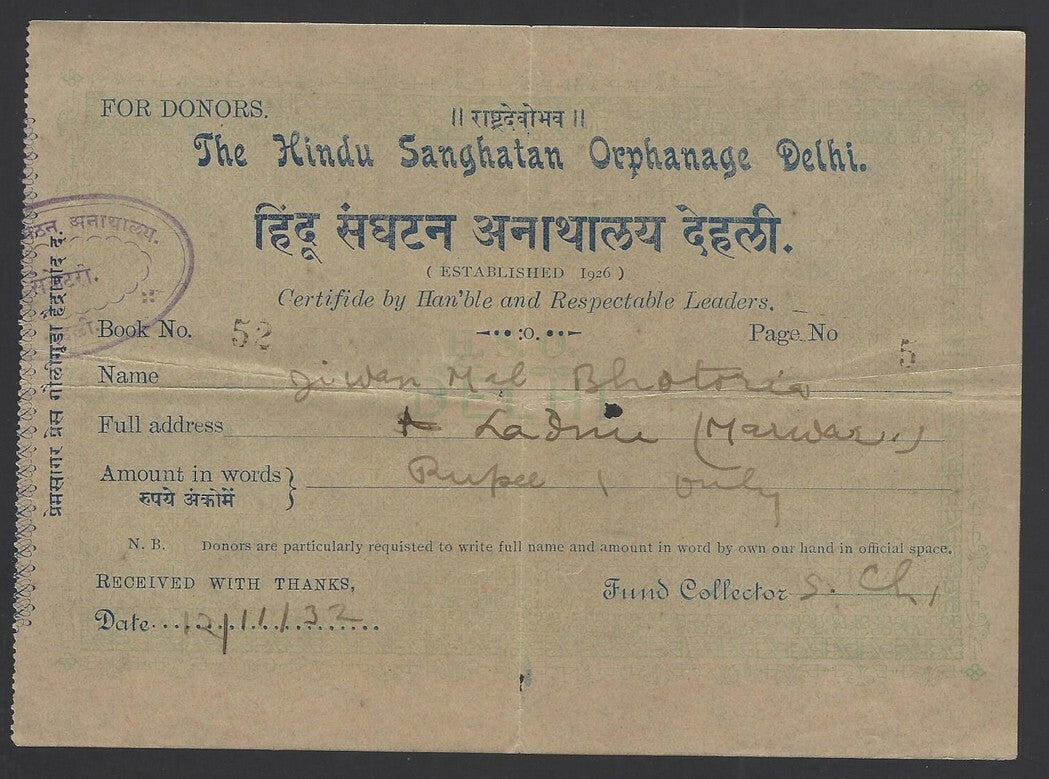 FOR DONORS.
|| राष्ट्रदेवोभव ||
The Hindu Sanghatan Orphanage Delhi.
हिंदू संघटन अनाथालय देहली.
( ESTABLISHED 1926 )
Certifide by Han'ble and Respectable Leaders.
Book No. 52
Page No 5
H. S. O.
DELHI
Name Jiwan Mal Bhotoria
Full address Ladnu (Marwar.)
Amount in words } Rupee 1 only
रुपये अंकोमें
N. B. Donors are particularly requisted to write full name and amount in word by own our hand in official space.
RECEIVED WITH THANKS,
Fund Collector S. Ch,
Date 12/11/32
अनाथालय.
प्रेमसागर प्रेस गौलीगुडा हैद्राबाद द.